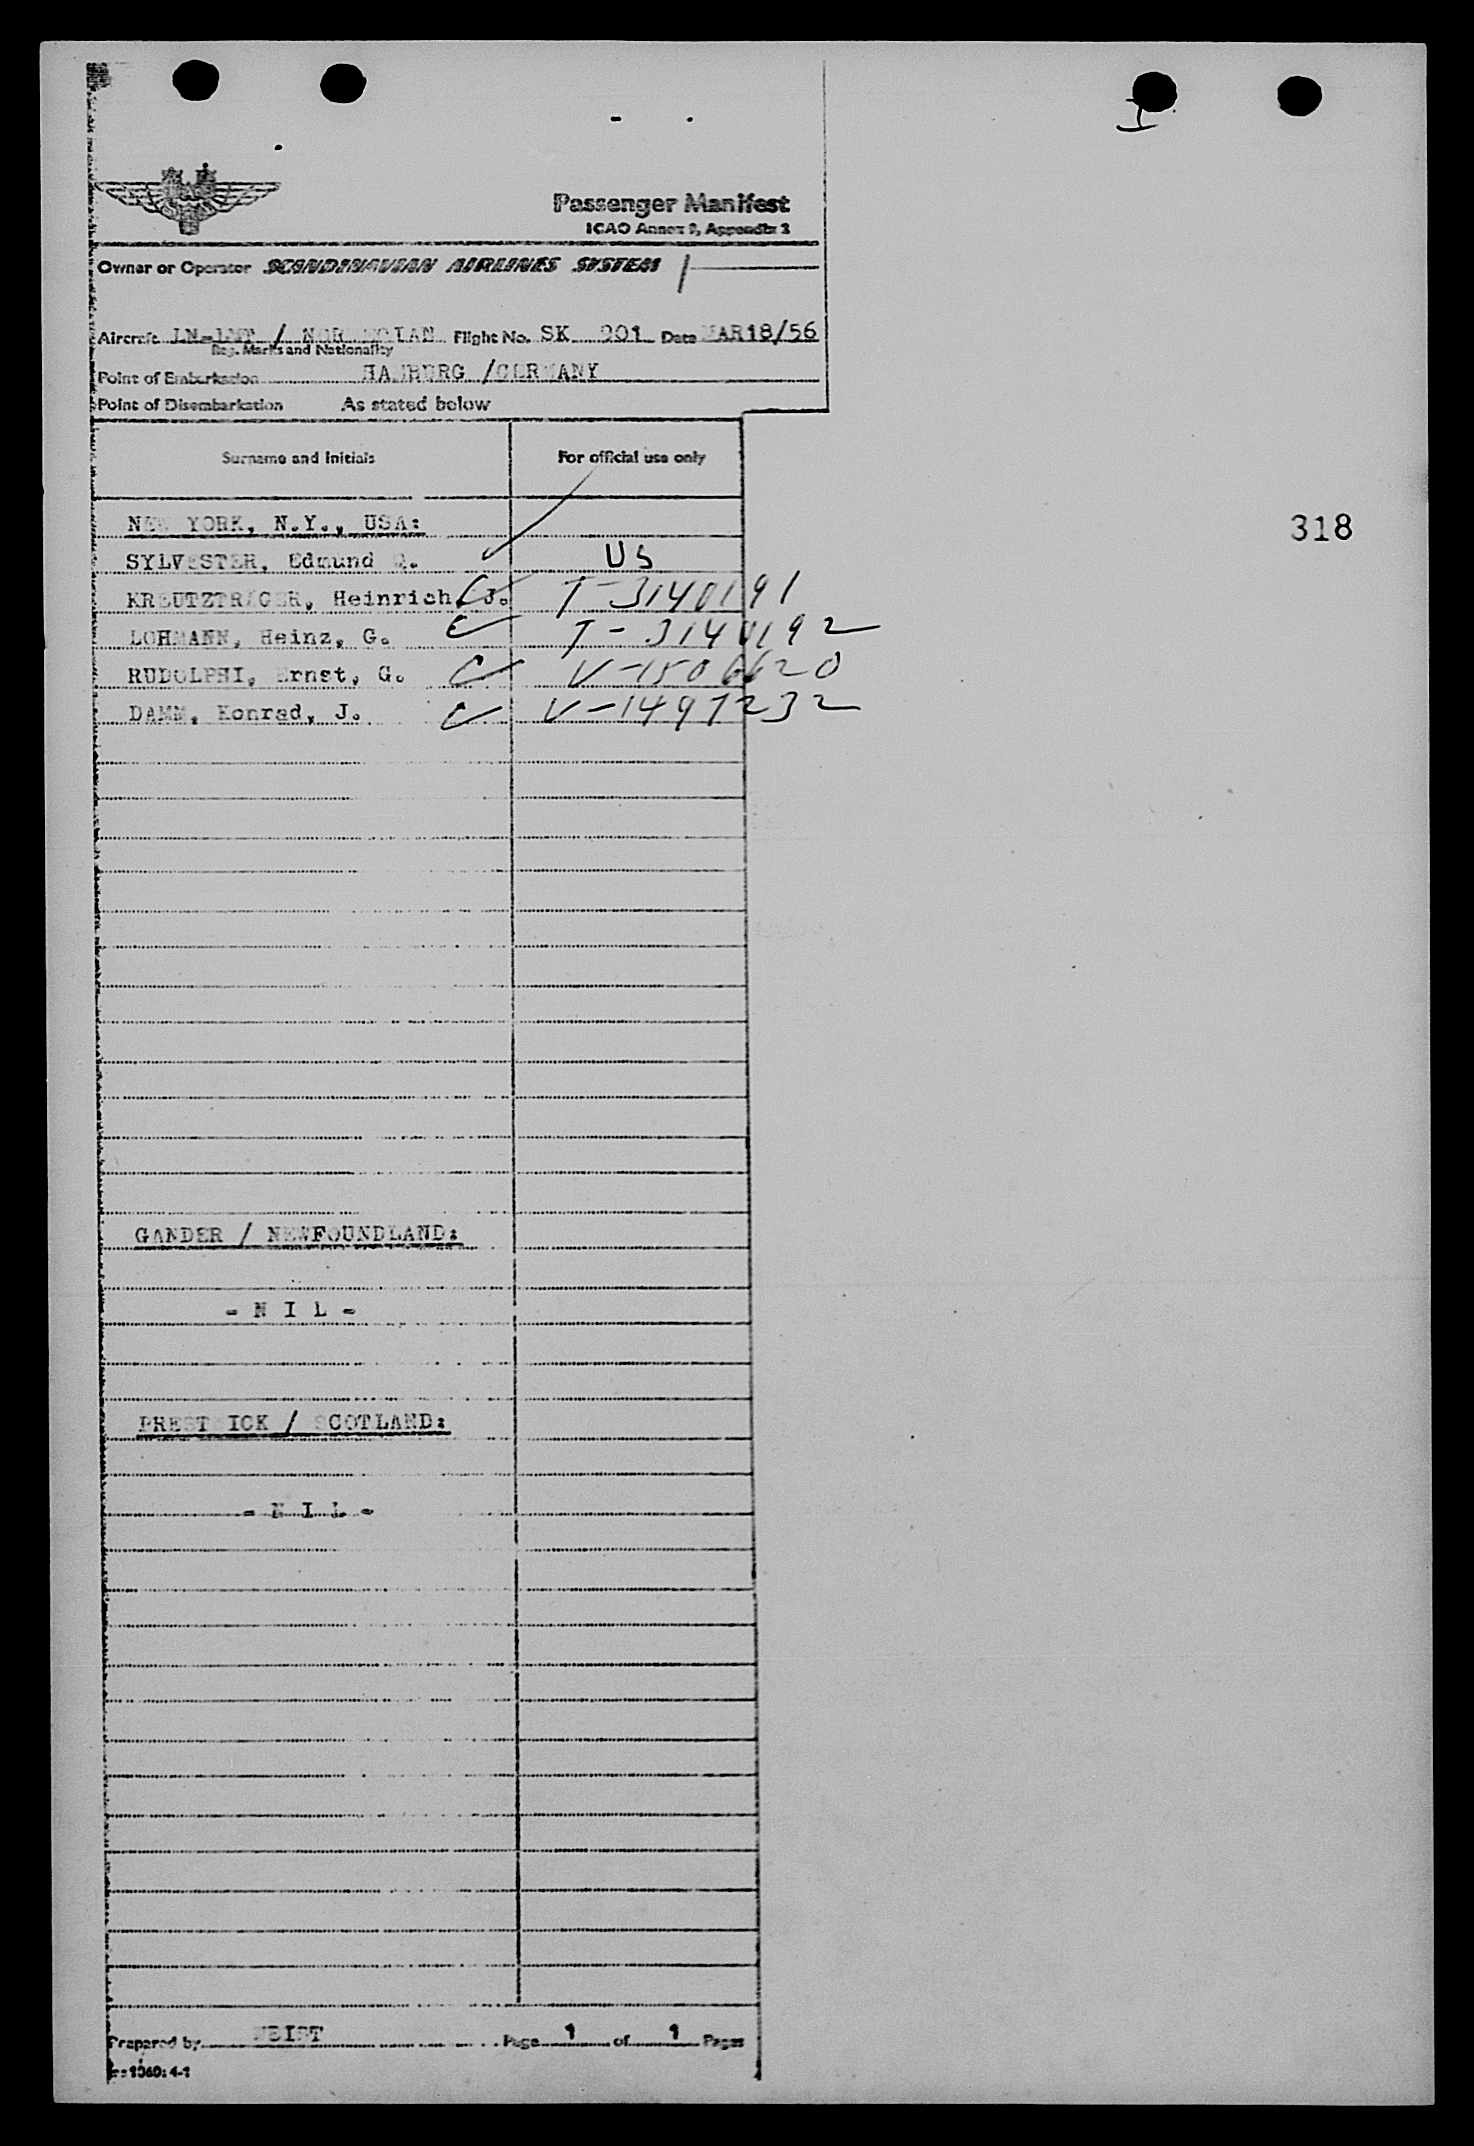 Passenger Manifest
ICAO Annex 9, Appendix 3
Owner or Operator SCANDINAVIAN AIRLINES SYSTEM 1
Aircraft LN-LMT / NORWEGIAN Flight No. SK 901 Date MAR18/56
Reg. Marks and Nationality
Point of Embarkation HAMBURG /GERMANY
Point of Disembarkation As stated below
Surname and Initials For official use only
318
NEW YORK, N.Y., USA:
SYLVESTER, Edmund US
KREUTZTRÄGER, Heinrich, J. T-3140191
LOHMANN, Heinz, G. T-3140192
RUDOLPHI, Ernst, G. V-1506620
DAMM, Konrad, J. V-1497232
GANDER / NEWFOUNDLAND:
- N I L -
PRESTWICK / SCOTLAND:
- N I L -
Prepared by Page 1 of 1 Pages
1060: 4-1